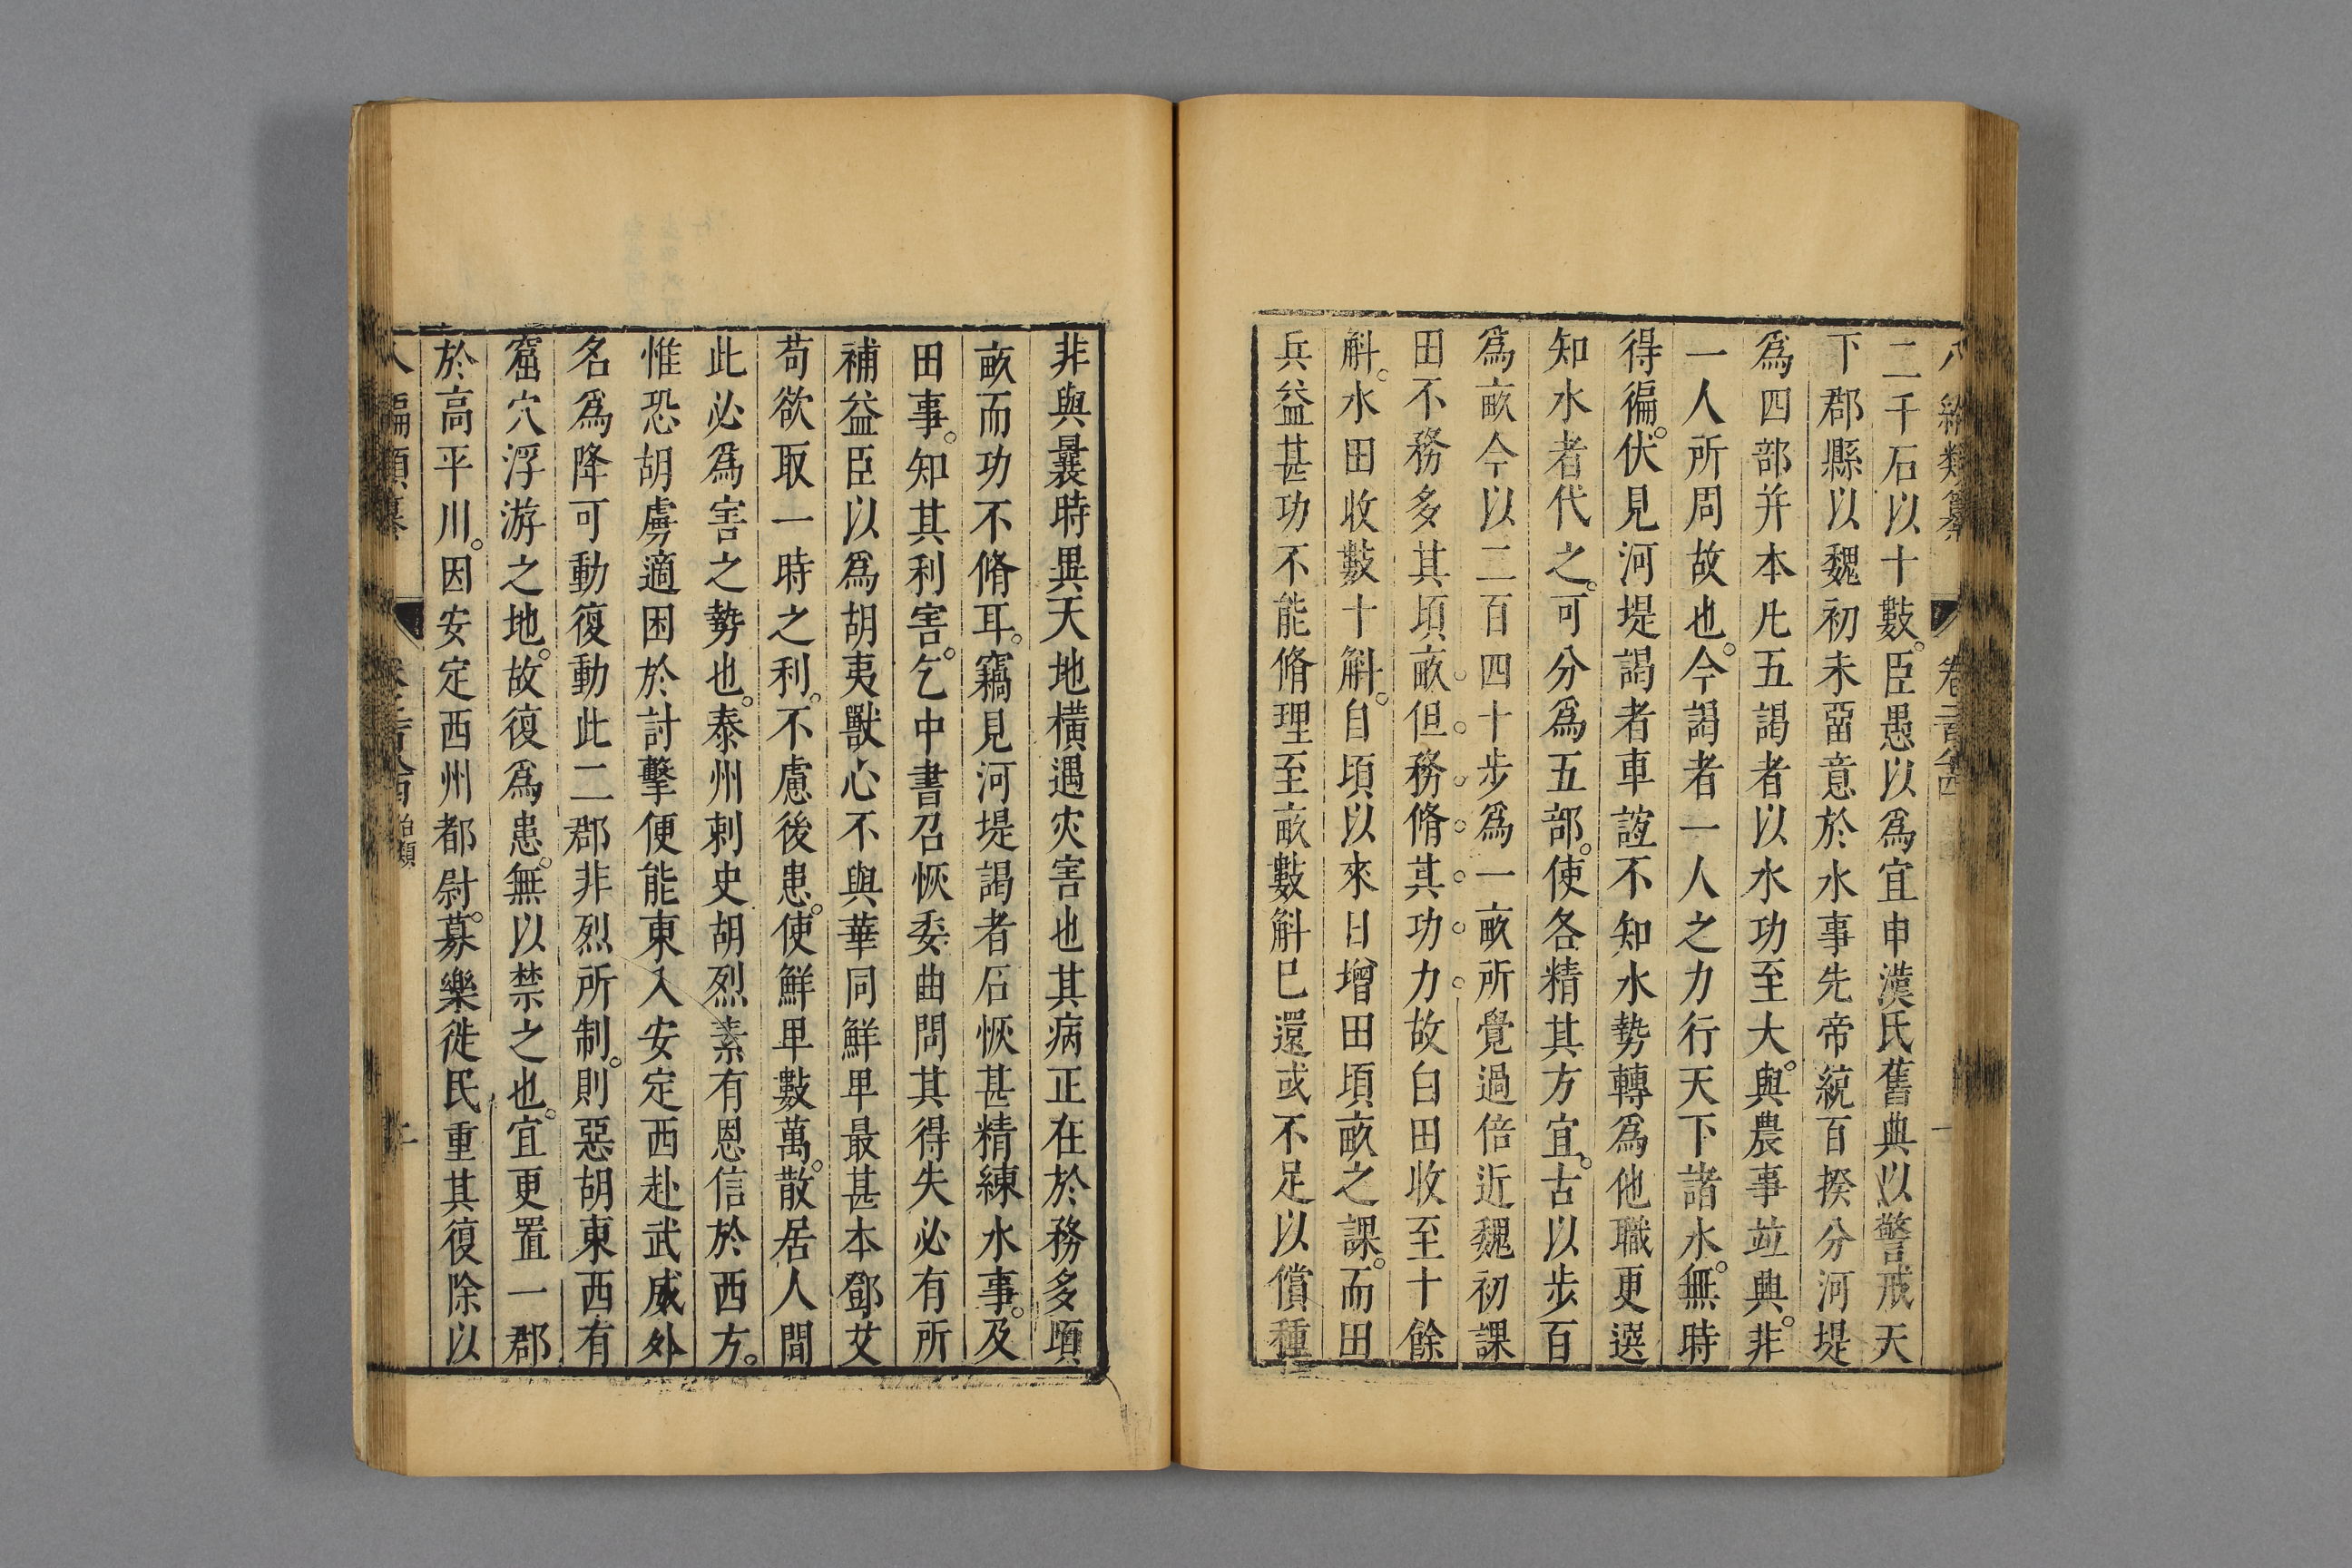 二千石以十數臣愚以為宜申漢氏舊典以警戒天
下郡縣以魏初未畱意於水事先帝統百揆分河堤
為四部并本凡五謁者以水功至大與農事並興非
一人所周故也今謁者一人之力行天下諸水無時
得徧伏見河堤謁者車誼不知水勢轉為他職更選
知水者代之可分為五部使各精其方宜古以步百
為畝今以二百四十步為一畝所覺過倍近魏初課
田不務多其頃畝但務脩其功力故白田收至十餘
斛水田收數十斛自頃以來日增田頃畝之課而田
兵益甚功不能脩理至畝數斛已還或不足以償種
非與曩時異天地橫遇灾害也其病正在於務多頃
畝而功不脩耳竊見河堤謁者石恢甚精練水事及
田事知其利害乞中書召恢委曲問其得失必有所
補益臣以為胡夷獸心不與華同鮮卑最甚本鄧艾
苟欲取一時之利不慮後患使鮮卑數萬散居人間
此必為害之勢也泰州刺史胡烈素有恩信於西方
惟恐胡虜適困於討擊便能東入安定西赴武威外
名為降可動復動此二郡非烈所制則惡胡東西有
窟穴浮游之地故復為患無以禁之也宜更置一郡
於高平川因安定西州都尉募樂徙民重其復除以